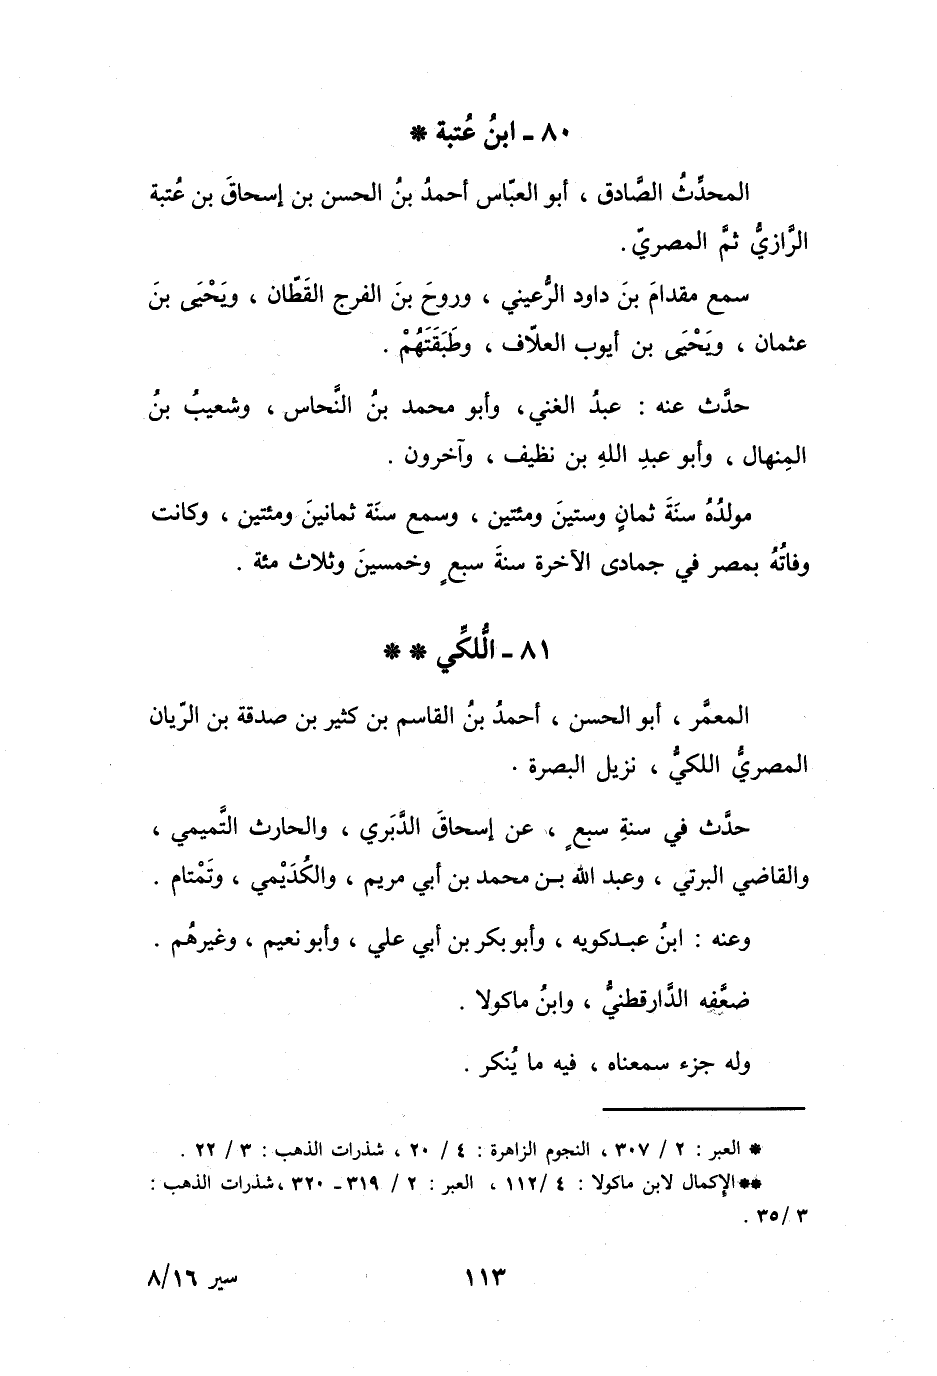 ٨٠ ـ ابنُ عُتبة *
المحدِّثُ الصَّادق ، أبو العبّاس أحمدُ بنُ الحسن بن إسحاقَ بن عُتبة
الرَّازيُّ ثمَّ المصريّ .
سمع مقدامَ بنَ داود الرُّعيني ، وروحَ بنَ الفرج القَطّان ، ويَحْيَى بنَ
عثمان ، ويَحْيَى بن أيوب العلاّف ، وطَبَقَتَهُمْ .
حدَّث عنه : عبدُ الغني، وأبو محمد بنُ النَّحاس ، وشعيبُ بنُ
المِنهال ، وأبو عبدِ اللهِ بن نظيف ، وآخرون .
مولدُهُ سنَةَ ثمانٍ وستينَ ومئتين ، وسمع سنَة ثمانينَ ومئتين ، وكانت
وفاتُهُ بمصر في جمادى الآخرة سنةَ سبعٍ وخمسينَ وثلاث مئة .
٨١ ـ اللُّكِّي * *
المعمَّر ، أبو الحسن ، أحمدُ بنُ القاسم بن كثير بن صدقة بن الرّيان
المصريُّ اللكيُّ ، نزيل البصرة .
حدَّث في سنةِ سبعٍ ، عن إسحاقَ الدَّبَري ، والحارث التَّميمي ،
والقاضي البرتي ، وعبد الله بـن محمد بن أبي مريم ، والكُدَيْمي ، وتَمْتام .
وعنه : ابنُ عبـدكويه ، وأبو بكر بن أبي علي ، وأبو نعيم ، وغيرهُم .
ضعَّفه الدَّارقطنيُّ ، وابنُ ماكولا .
وله جزء سمعناه ، فيه ما يُنكر .
* العبر : ٢ / ٣٠٧ ، النجوم الزاهرة : ٤ / ٢٠ ، شذرات الذهب : ٣ / ٢٢ .
**الإكمال لابن ماكولا : ٤ /١١٢ ، العبر : ٢ / ٣١٩ ـ ٣٢٠ ،شذرات الذهب :
٣ /٣٥ .
١١٣
سير ٨/١٦